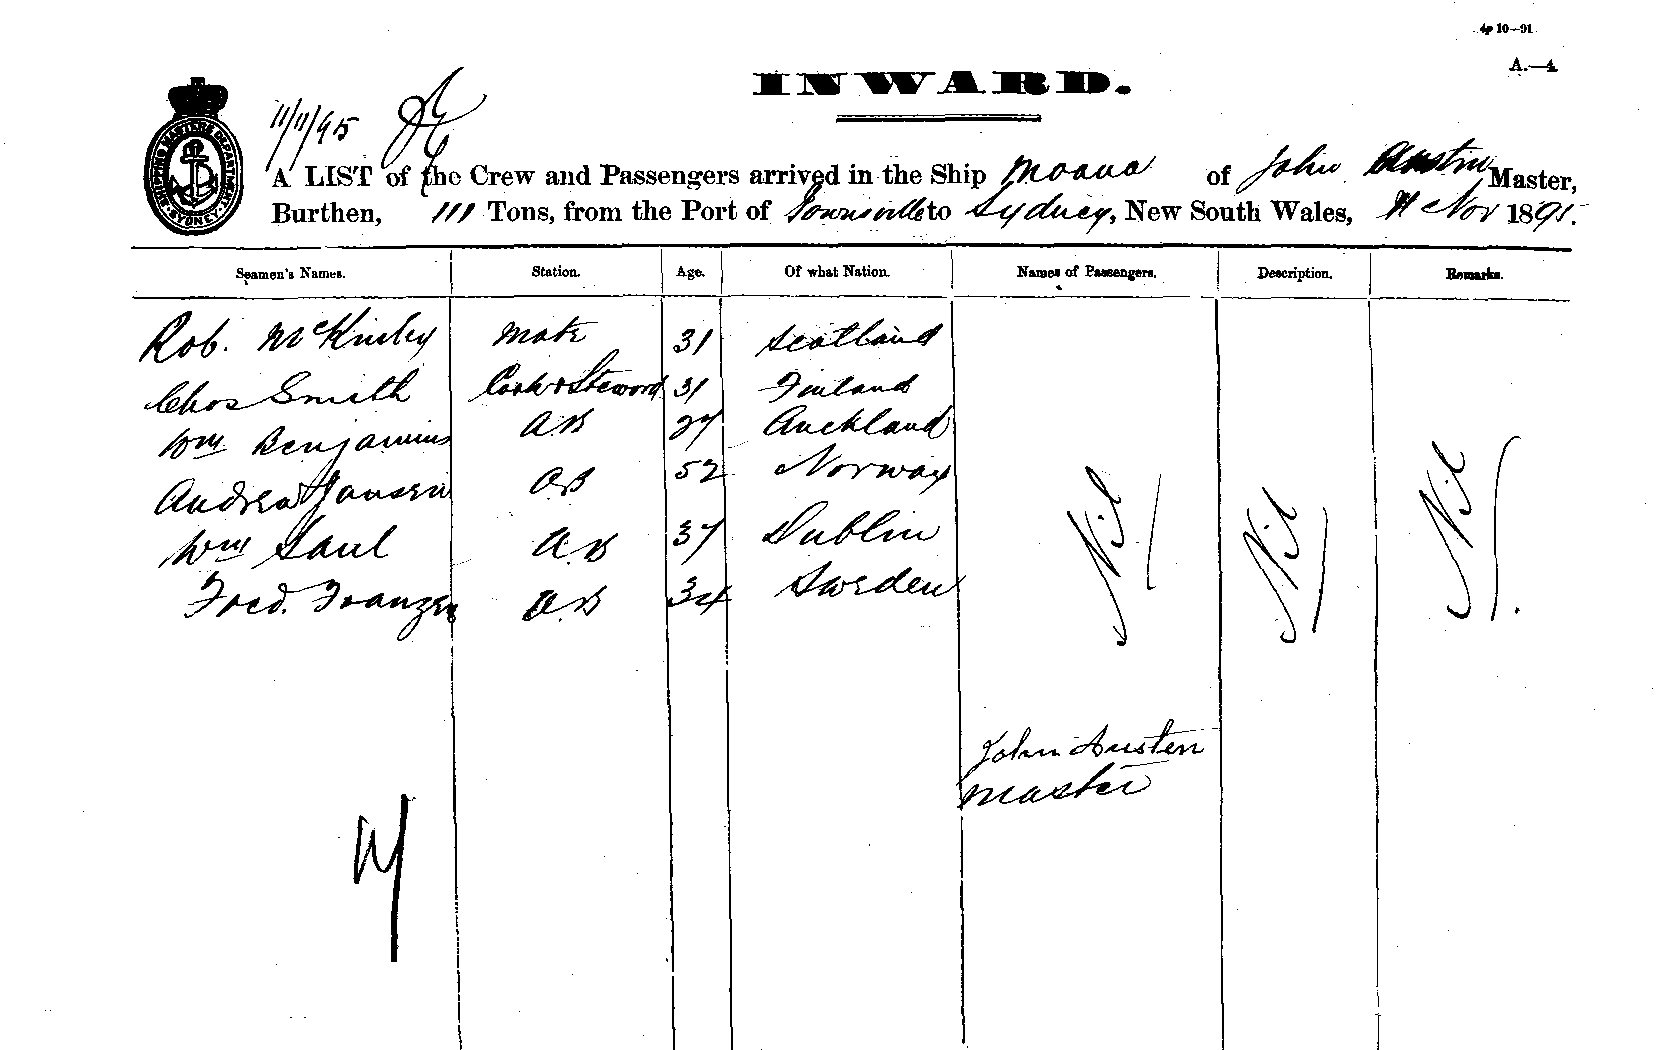 4p 10—91
A.—4
INWARD.
SHIPPING MASTERS DEPARTMENT SYDNEY
11/11/95
A LIST of the Crew and Passengers arrived in the Ship Moana of John Austin Master,
Burthen, 111 Tons, from the Port of Townsville to Sydney, New South Wales, 11 Nov 1895.
Seamen's Names. Station. Age. Of what Nation. Names of Passengers. Description. Remarks.
Rob. McKinley Mate 31 Scotland
Chas Smith Cook & Steward 31 Finland
Wm Benjamins AB 27 Auckland
Andrea Jansen AB 52 Norway
Wm Saul AB 37 Dublin
Fred. Franzen AB 34 Sweden
Nil Nil Nil
John Austen
Master